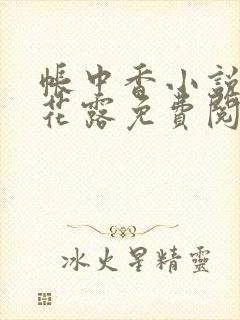 帳中香小說
花露免費閱
冰火星精靈